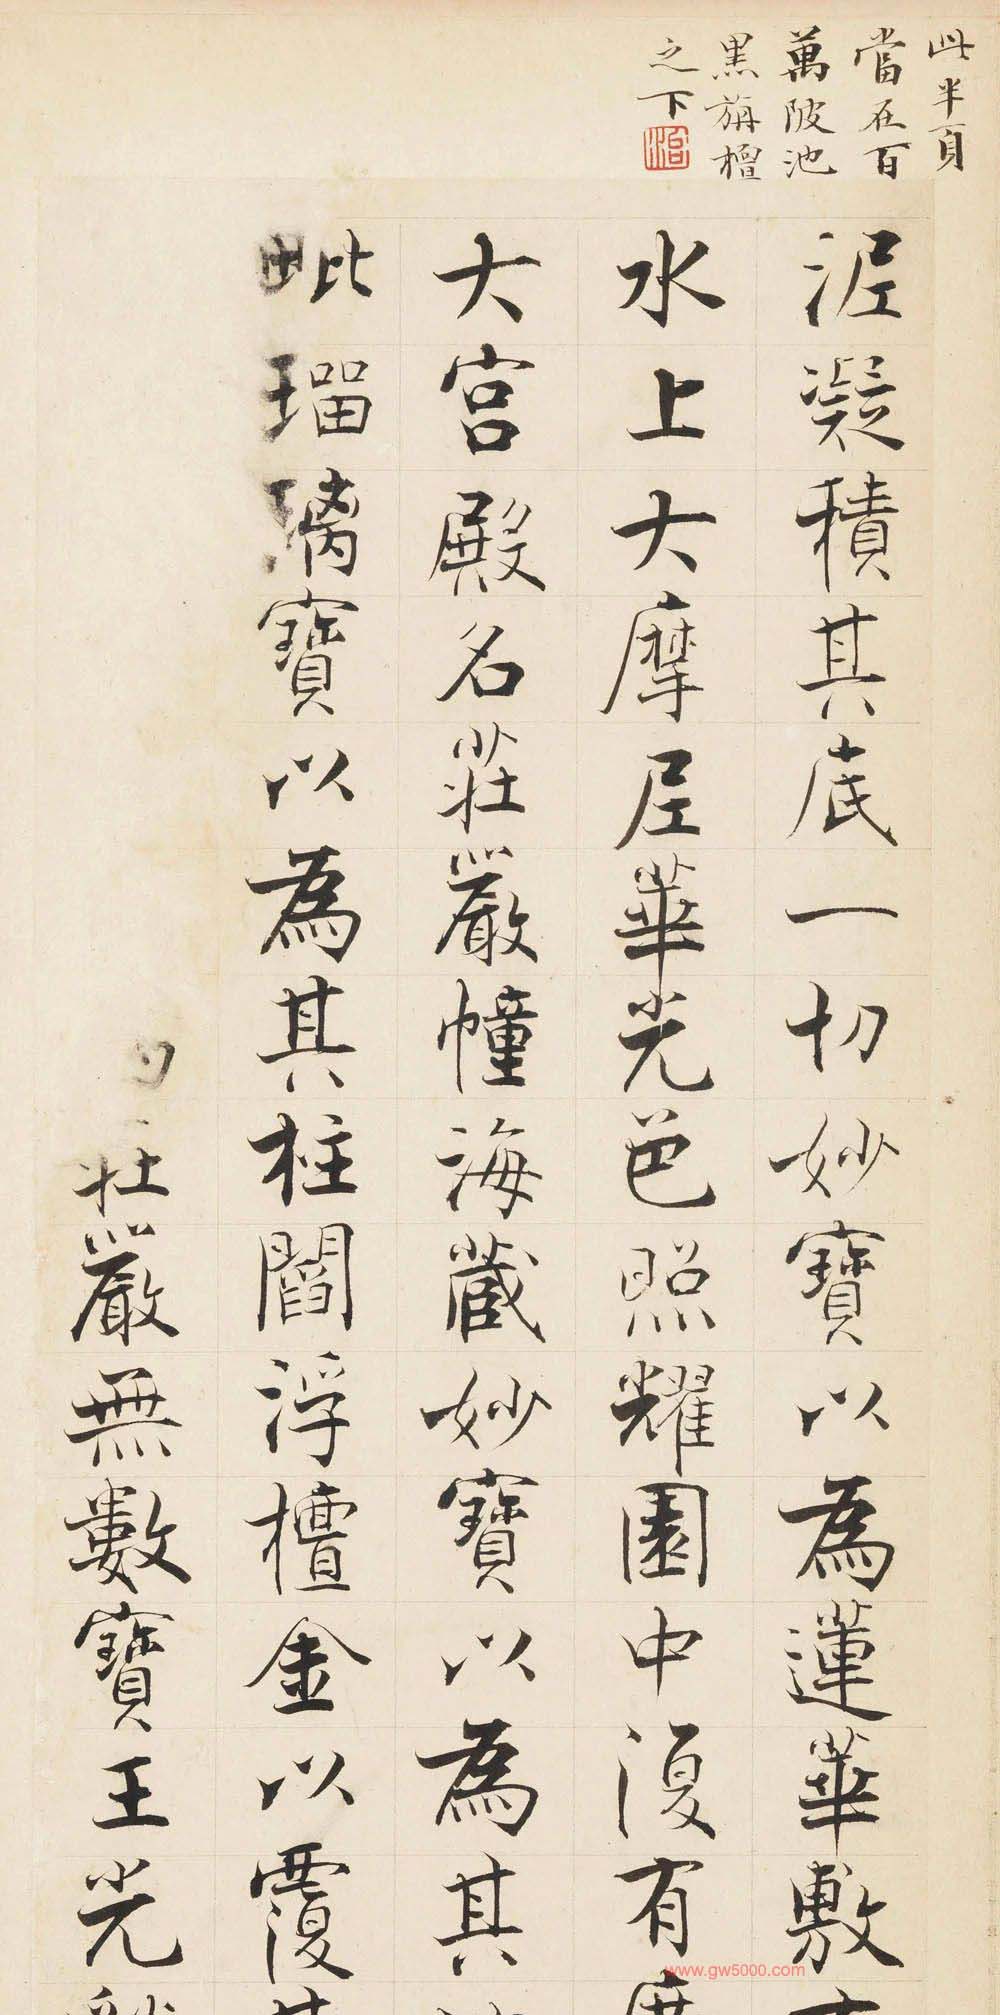 此半頁
當在百
萬陂池
黑旃檀
之下
泥凝積其底一切妙寶以為蓮華敷
水上大摩尼華光色照耀園中復有
大宮殿名莊嚴幢海藏妙寶以為其
毗瑠璃寶以為其柱閻浮檀金以覆其
莊嚴無數寶王光
www.gw5000.com